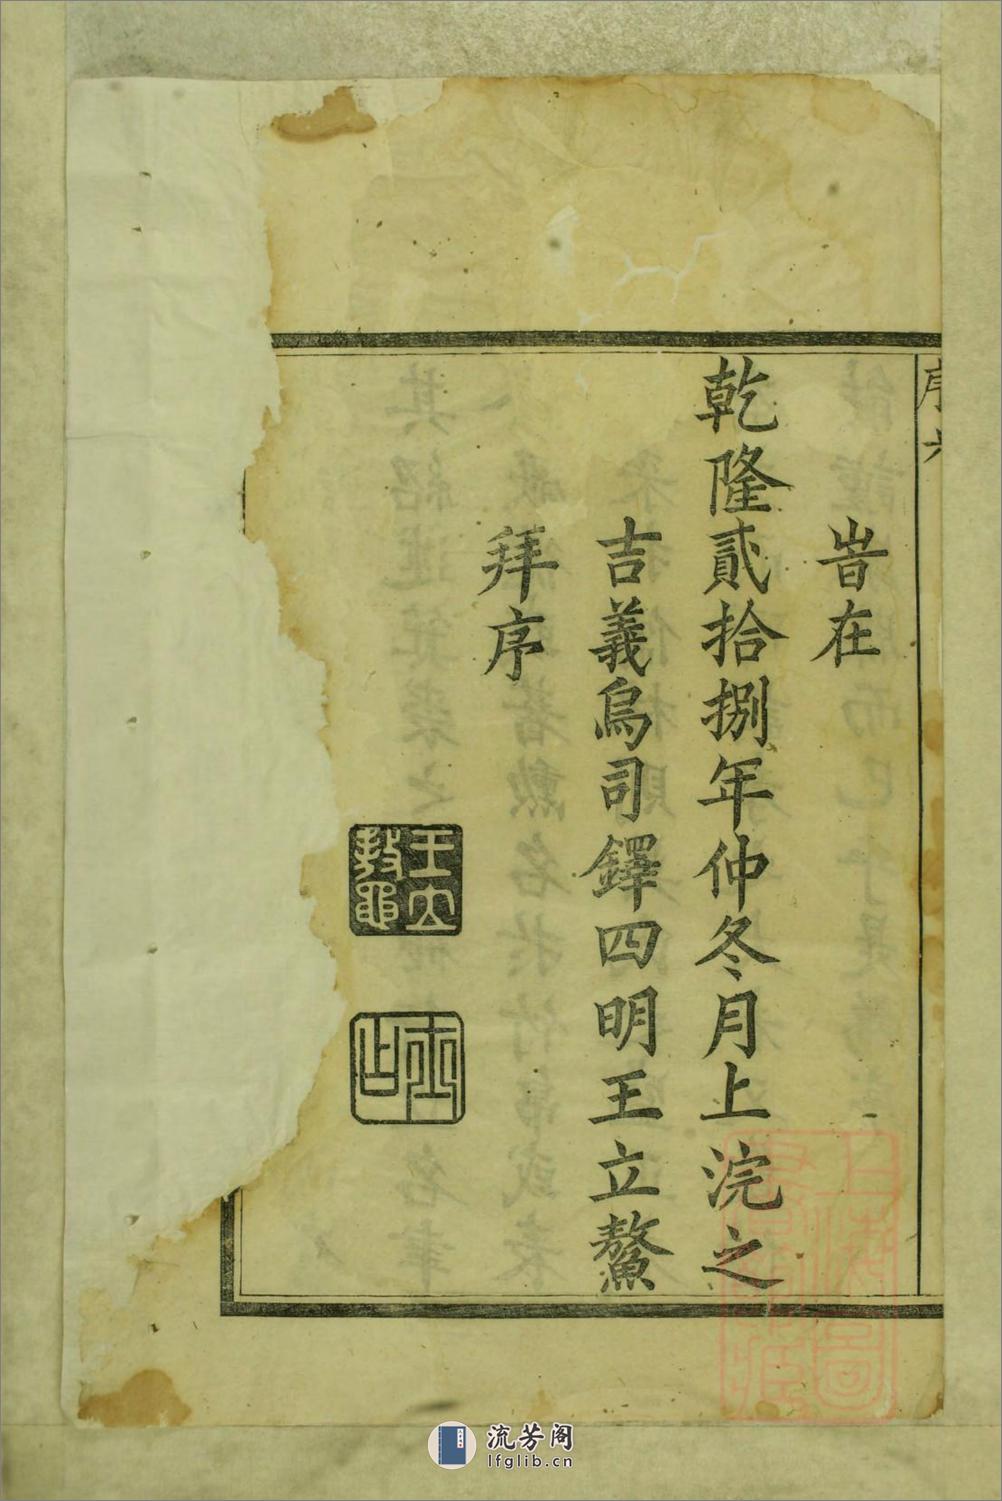 序六
旹在
乾隆貳拾捌年仲冬月上浣之
吉義烏司鐸四明王立鰲
拜序
流芳阁
lfglib.cn